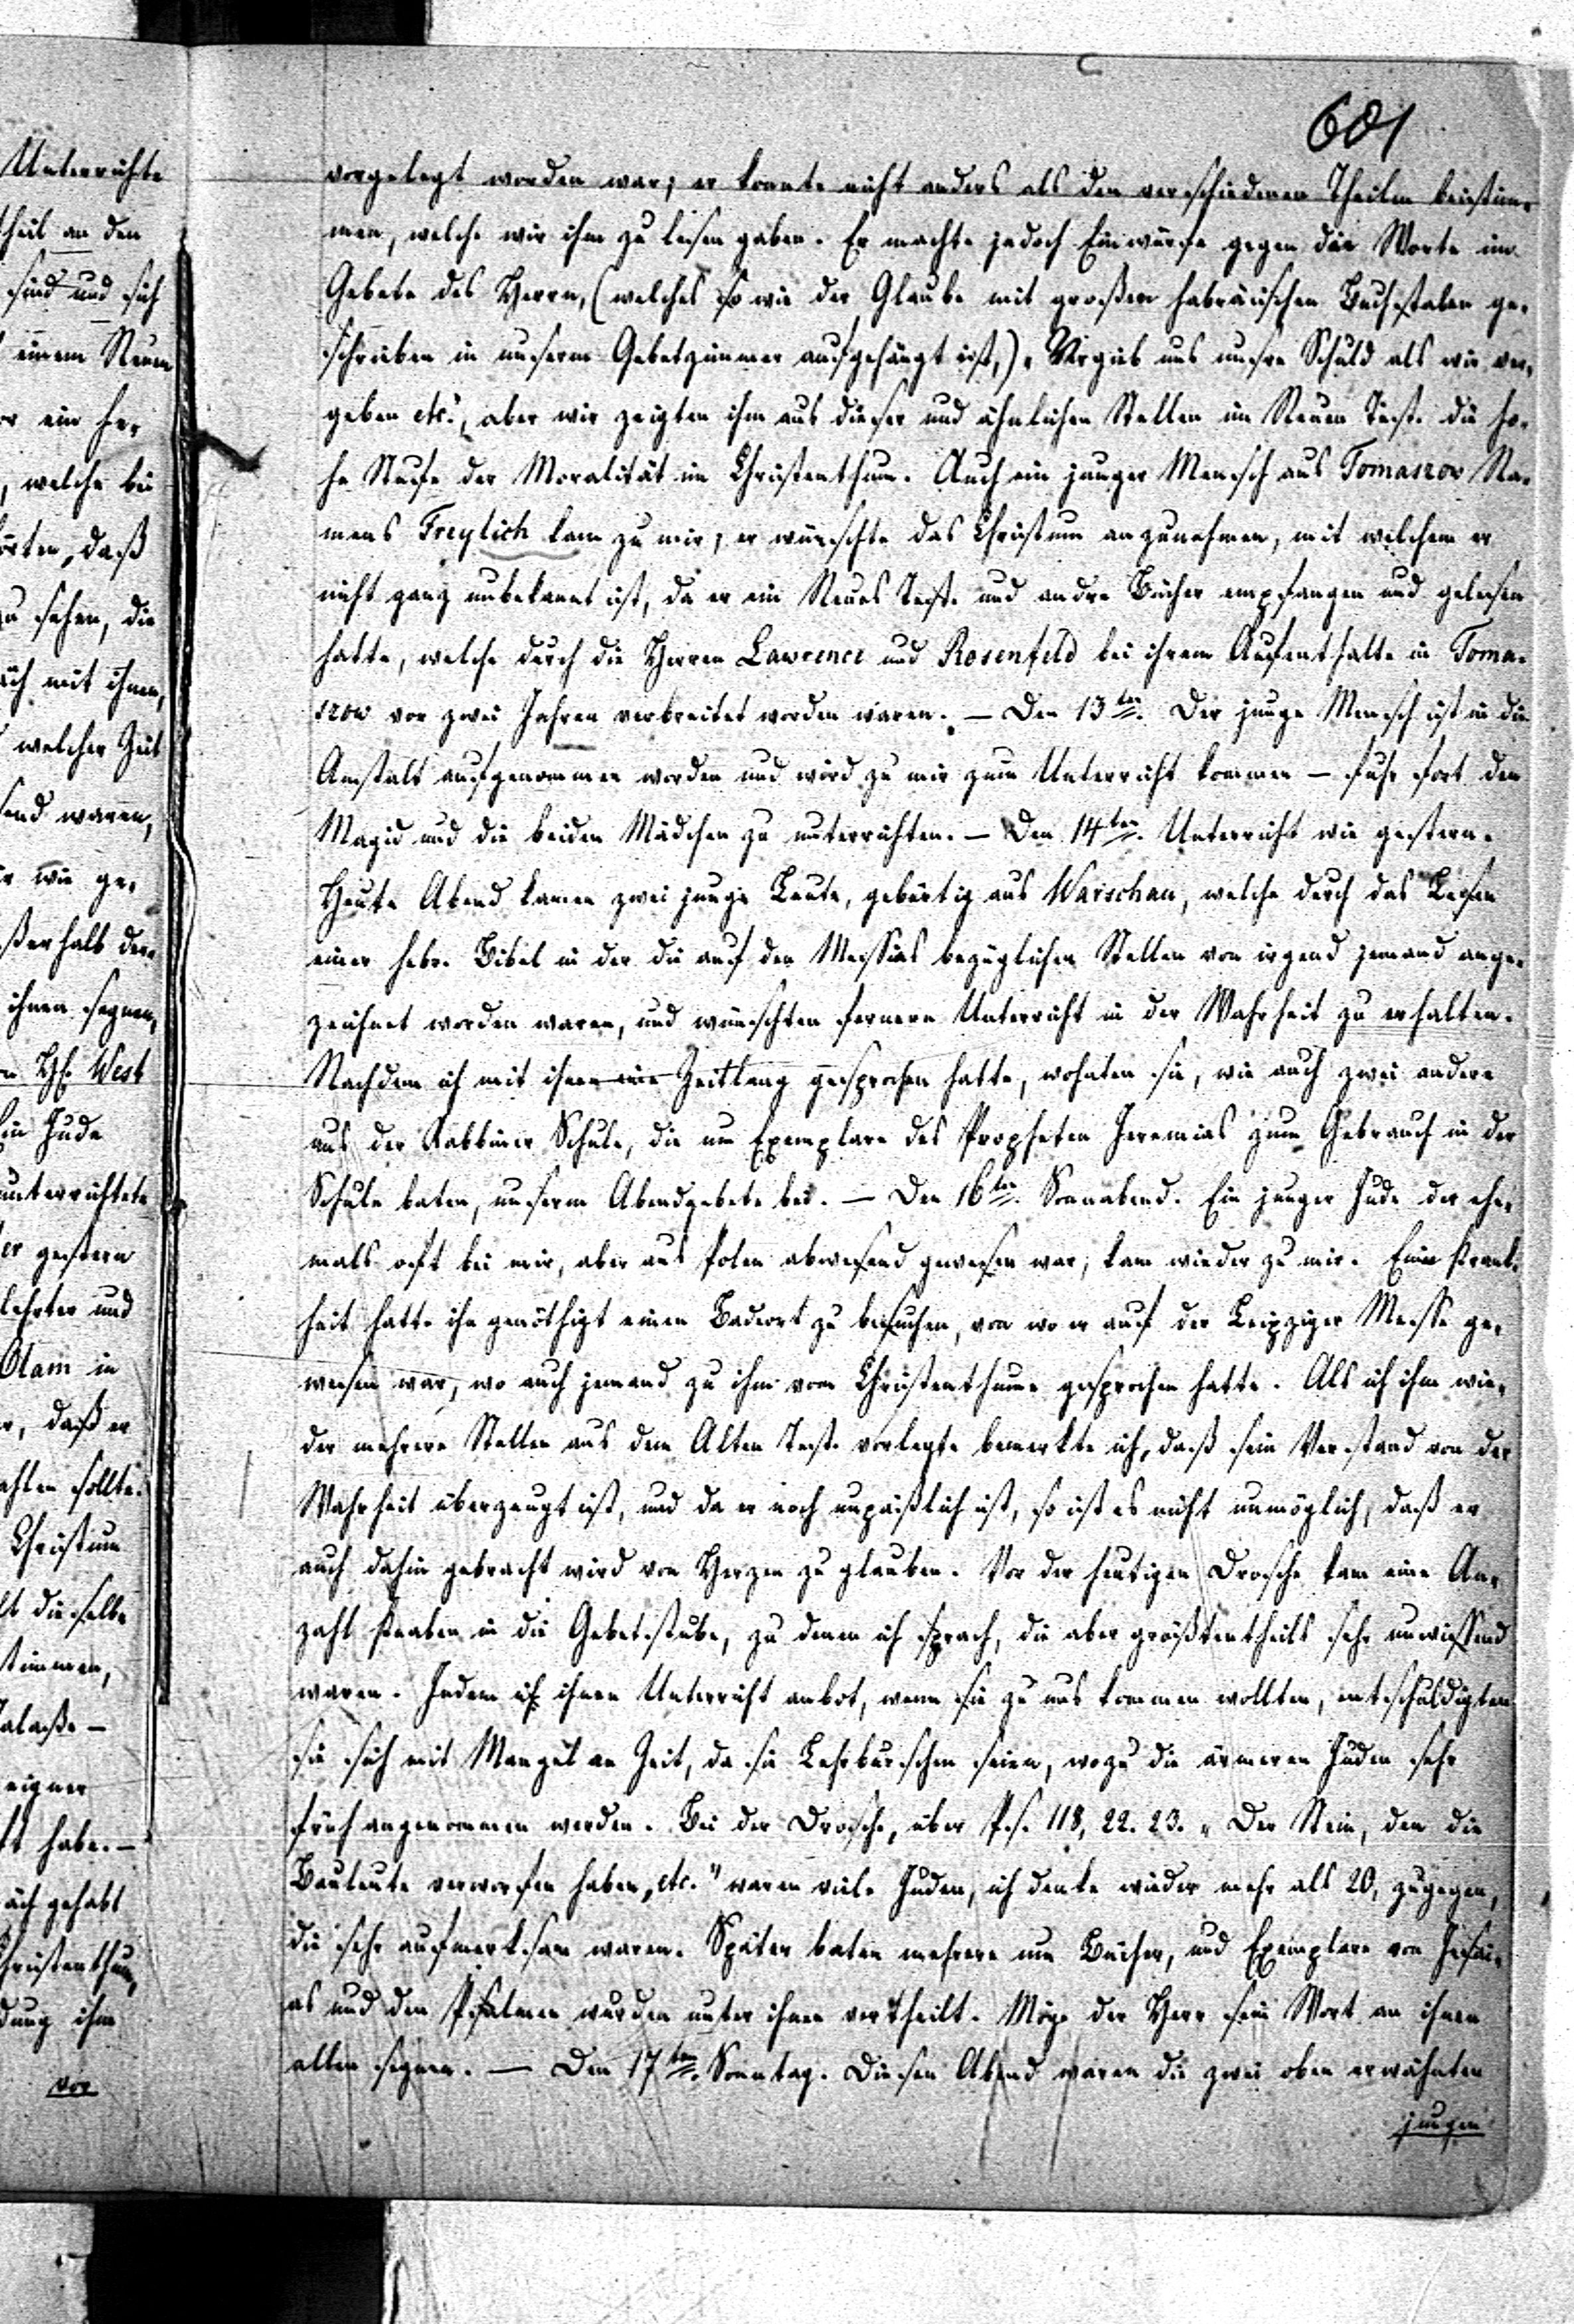 601
vorgelegt worden war; er konnte nicht anders als den verschiedenen Theilen beistim-
men, welche wir ihm zu lesen gaben. Er machte jedoch Einwürfe gegen die Worte im
Gebete des Herrn, (welches so wie der Glaube mit großen hebräischen Buchstaben ge-
schrieben in unserm Gebetzimmer aufgehängt ist,) „Vergieb uns unsre Schuld als wir ver-
geben etc.", aber wir zeigten ihm aus dieser und ähnlichen Stellen im Neuen Test. die ho-
he Stufe der Moralität im Christenthum. Auch ein junger Mensch aus Tomaszow Na-
mens Freylich kam zu mir, er wünschte das Christum anzunehmen, mit welchem er
nicht ganz unbekannt ist, da er ein Neues Test. und andre Bücher empfangen und gelesen
hatte, welche durch die Herren Lawrence und Rosenfeld bei ihrem Aufenthalte in Toma-
szow vor zwei Jahren verbreitet worden waren. — Den 13ten. Der junge Mensch ist in die
Anstalt aufgenommen worden und wird zu mir zum Unterricht kommen — fuhr fort den
Magid und die beiden Mädchen zu unterrichten. — Den 14ten. Unterricht wie gestern.
Heute Abend kamen zwei junge Leute, gebürtig aus Warschau, welche durch das Lesen
einer hebr. Bibel in der die auf den Messias bezüglichen Stellen von irgend jemand ange-
zeichnet worden waren, und wünschten fernern Unterricht in der Wahrheit zu erhalten.
Nachdem ich mit ihnen eine Zeitlang gesprochen hatte, wohnten sie, wie auch zwei andere
aus der Rabbiner Schule, die um Exemplare des Propheten Jeremias zum Gebrauch in der
Schule baten, unserm Abendgebete bei. — Den 16ten. Sonnabend. Ein junger Jude der ehe-
mals oft bei mir, aber aus Polen abwesend gewesen war, kam wieder zu mir. Eine Krank-
heit hatte ihn genöthigt einen Badeort zu besuchen, von wo er auf der Leipziger Messe ge-
wesen war, wo auch jemand zu ihm vom Christenthume gesprochen hatte. Als ich ihm wie-
der mehrere Stellen aus dem Alten Test. vorlegte bemerkte ich, daß sein Verstand von der
Wahrheit überzeugt ist, und da er noch unpäßlich ist, so ist es nicht unmöglich, daß er
auch dahin gebracht wird von Herzen zu glauben. Vor der heutigen Drosche kam eine An-
zahl Knaben in die Gebetstube, zu denen ich sprach, die aber größtentheils sehr unwissend
waren. Indem ich ihnen Unterricht anbot, wenn sie zu uns kommen wollten, entschuldigten
sie sich mit Mangel an Zeit, da sie Lehrburschen seien, wozu die ärmeren Juden sehr
früh angenommen werden. Bei der Drosche, über Ps. 118, 22. 23. „Der Stein, den die
Bauleute verworfen haben, etc." waren viele Juden, ich denke wieder mehr als 20, zugegen,
die sehr aufmerksam waren. Später baten mehrere um Bücher, und Exemplare von Jesai-
as und den Psalmen wurden unter ihnen vertheilt. Möge der Herr sein Wort an ihnen
allen segnen. — Den 17ten. Sonntag. Diesen Abend waren die zwei oben erwähnten
jungen
Unterrichte
theil an den
sind und sich
einem Neuen
, welche bei
daß
zu sehen, die
mit ihnen,
welcher Zeit
waren,
wie ge-
ihnen segnen,
West
Ein Jude
unterrichtete
er gestern
und
Olam in
daß er
sollte.
Christum
dieselbe
stimmen,
eigner
habe. —
gehabt
Christenthum,
ihm
vor